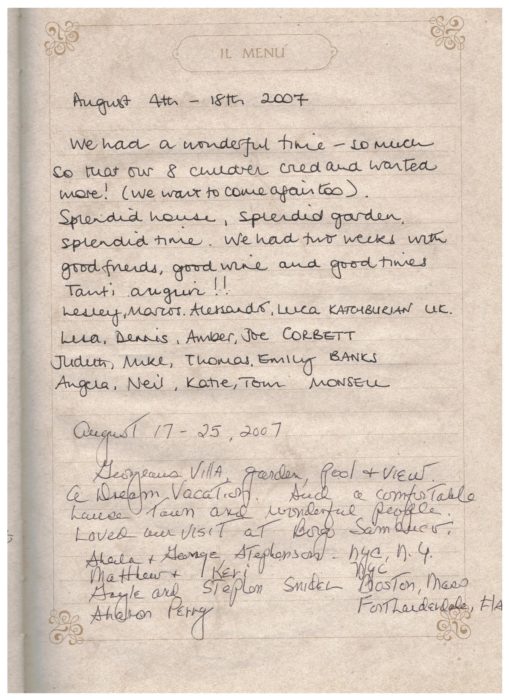 IL MENÚ
August 4th - 18th 2007
We had a wonderful time - so much
so that our 8 children cried and wanted
more! (We want to come again too).
Splendid house, splendid garden,
splendid time. We had two weeks with
good friends, good wine and good times
Tanti auguri!!
Lesley, Marcos, Alessandro, Luca KATCHBURIAN UK.
Lisa, Dennis, Amber, Joe CORBETT
Judith, Mike, Thomas, Emily BANKS
Angela, Neil, Katie, Tom MONSELL
August 17-25, 2007
Gorgeous Villa, garden, pool + view.
a Dream Vacation. And a comfortable
house town and wonderful people.
Loved our visit at Borgo
Sheila + George Stephenson - NYC, N.Y.
Matthew + Keri NYC
Gayle and Stephen Boston, Mass
Sharon Perry Fort Lauderdale, FLA